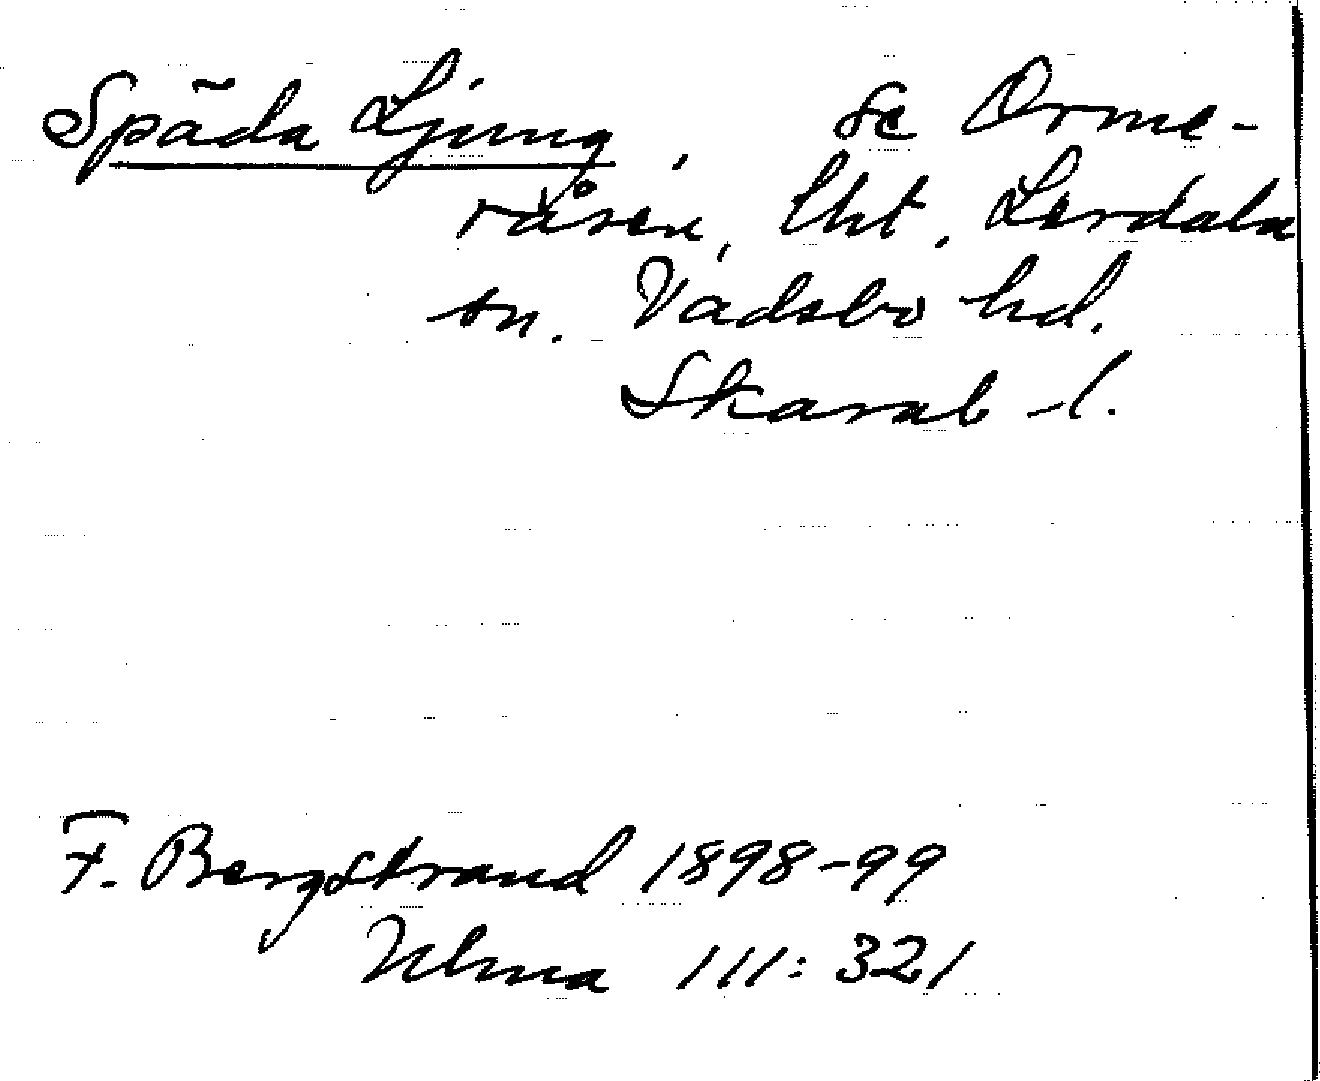 Späda Ljung, se Orme-
råsen, lht, Lerdala
sn. Vadsbo hd.
Skarab l.
F. Bergstrand 1898-99
Ulma 111:321